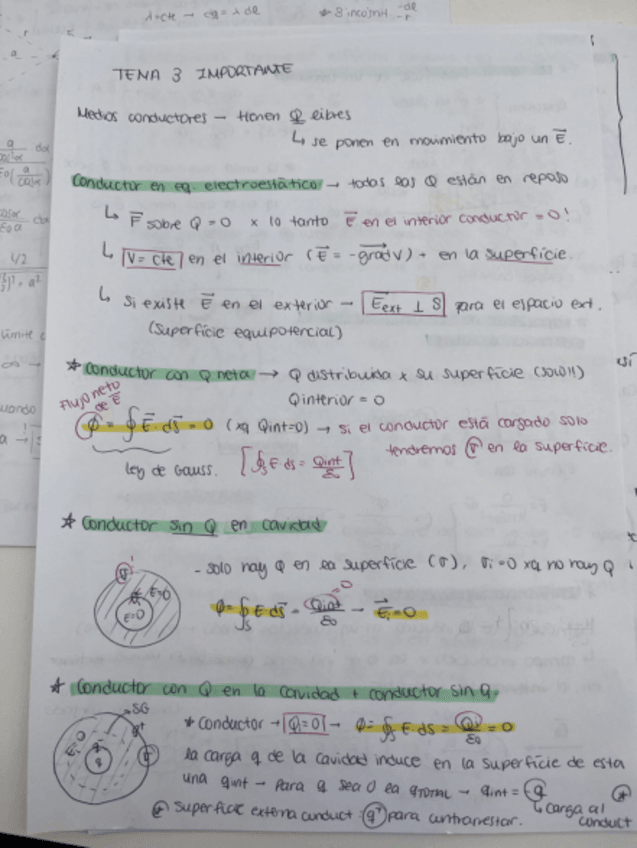 λ=cte → dq = λ dl
TEMA 3 IMPORTANTE
Medios conductores → tienen Q libres
↳ se ponen en movimiento bajo un E⃗.
Conductor en eq. electroestático → todos los Q están en reposo
↳ F⃗ sobre Q = 0 x lo tanto E⃗ en el interior conductor = 0!
↳ V = cte en el interior (E⃗ = -grad V) + en la superficie.
↳ Si existe E⃗ en el exterior → E⃗ext ⊥ S para el espacio ext.
(Superficie equipotencial)
* Conductor con Q neta → Q distribuida x su superficie (solo!!)
Qinterior = 0
Flujo neto de E⃗
Φ = ∮ E⃗·ds⃗ = 0 (xq Qint=0) → si el conductor está cargado solo
tendremos σ en la superficie.
Ley de Gauss. [∮s E ds = Qint/ε0]
* Conductor sin Q en cavidad
- solo hay Q en la superficie (σ), σi = 0 xq no hay Q
σ E=0 E=0
Φ = ∮s E ds⃗ = Qint/ε0 → E⃗i = 0
=0
* Conductor con Q en la cavidad + conductor sin q.
SG
* Conductor → Qi = 0 → Φ = ∮s E ds = Qi/ε0 = 0
la carga q de la cavidad induce en la superficie de esta
una qint → Para q sea 0 la qtotal → qint = -q
↳ carga al conduct
superficie externa conduct q⁺ para contrarrestar.